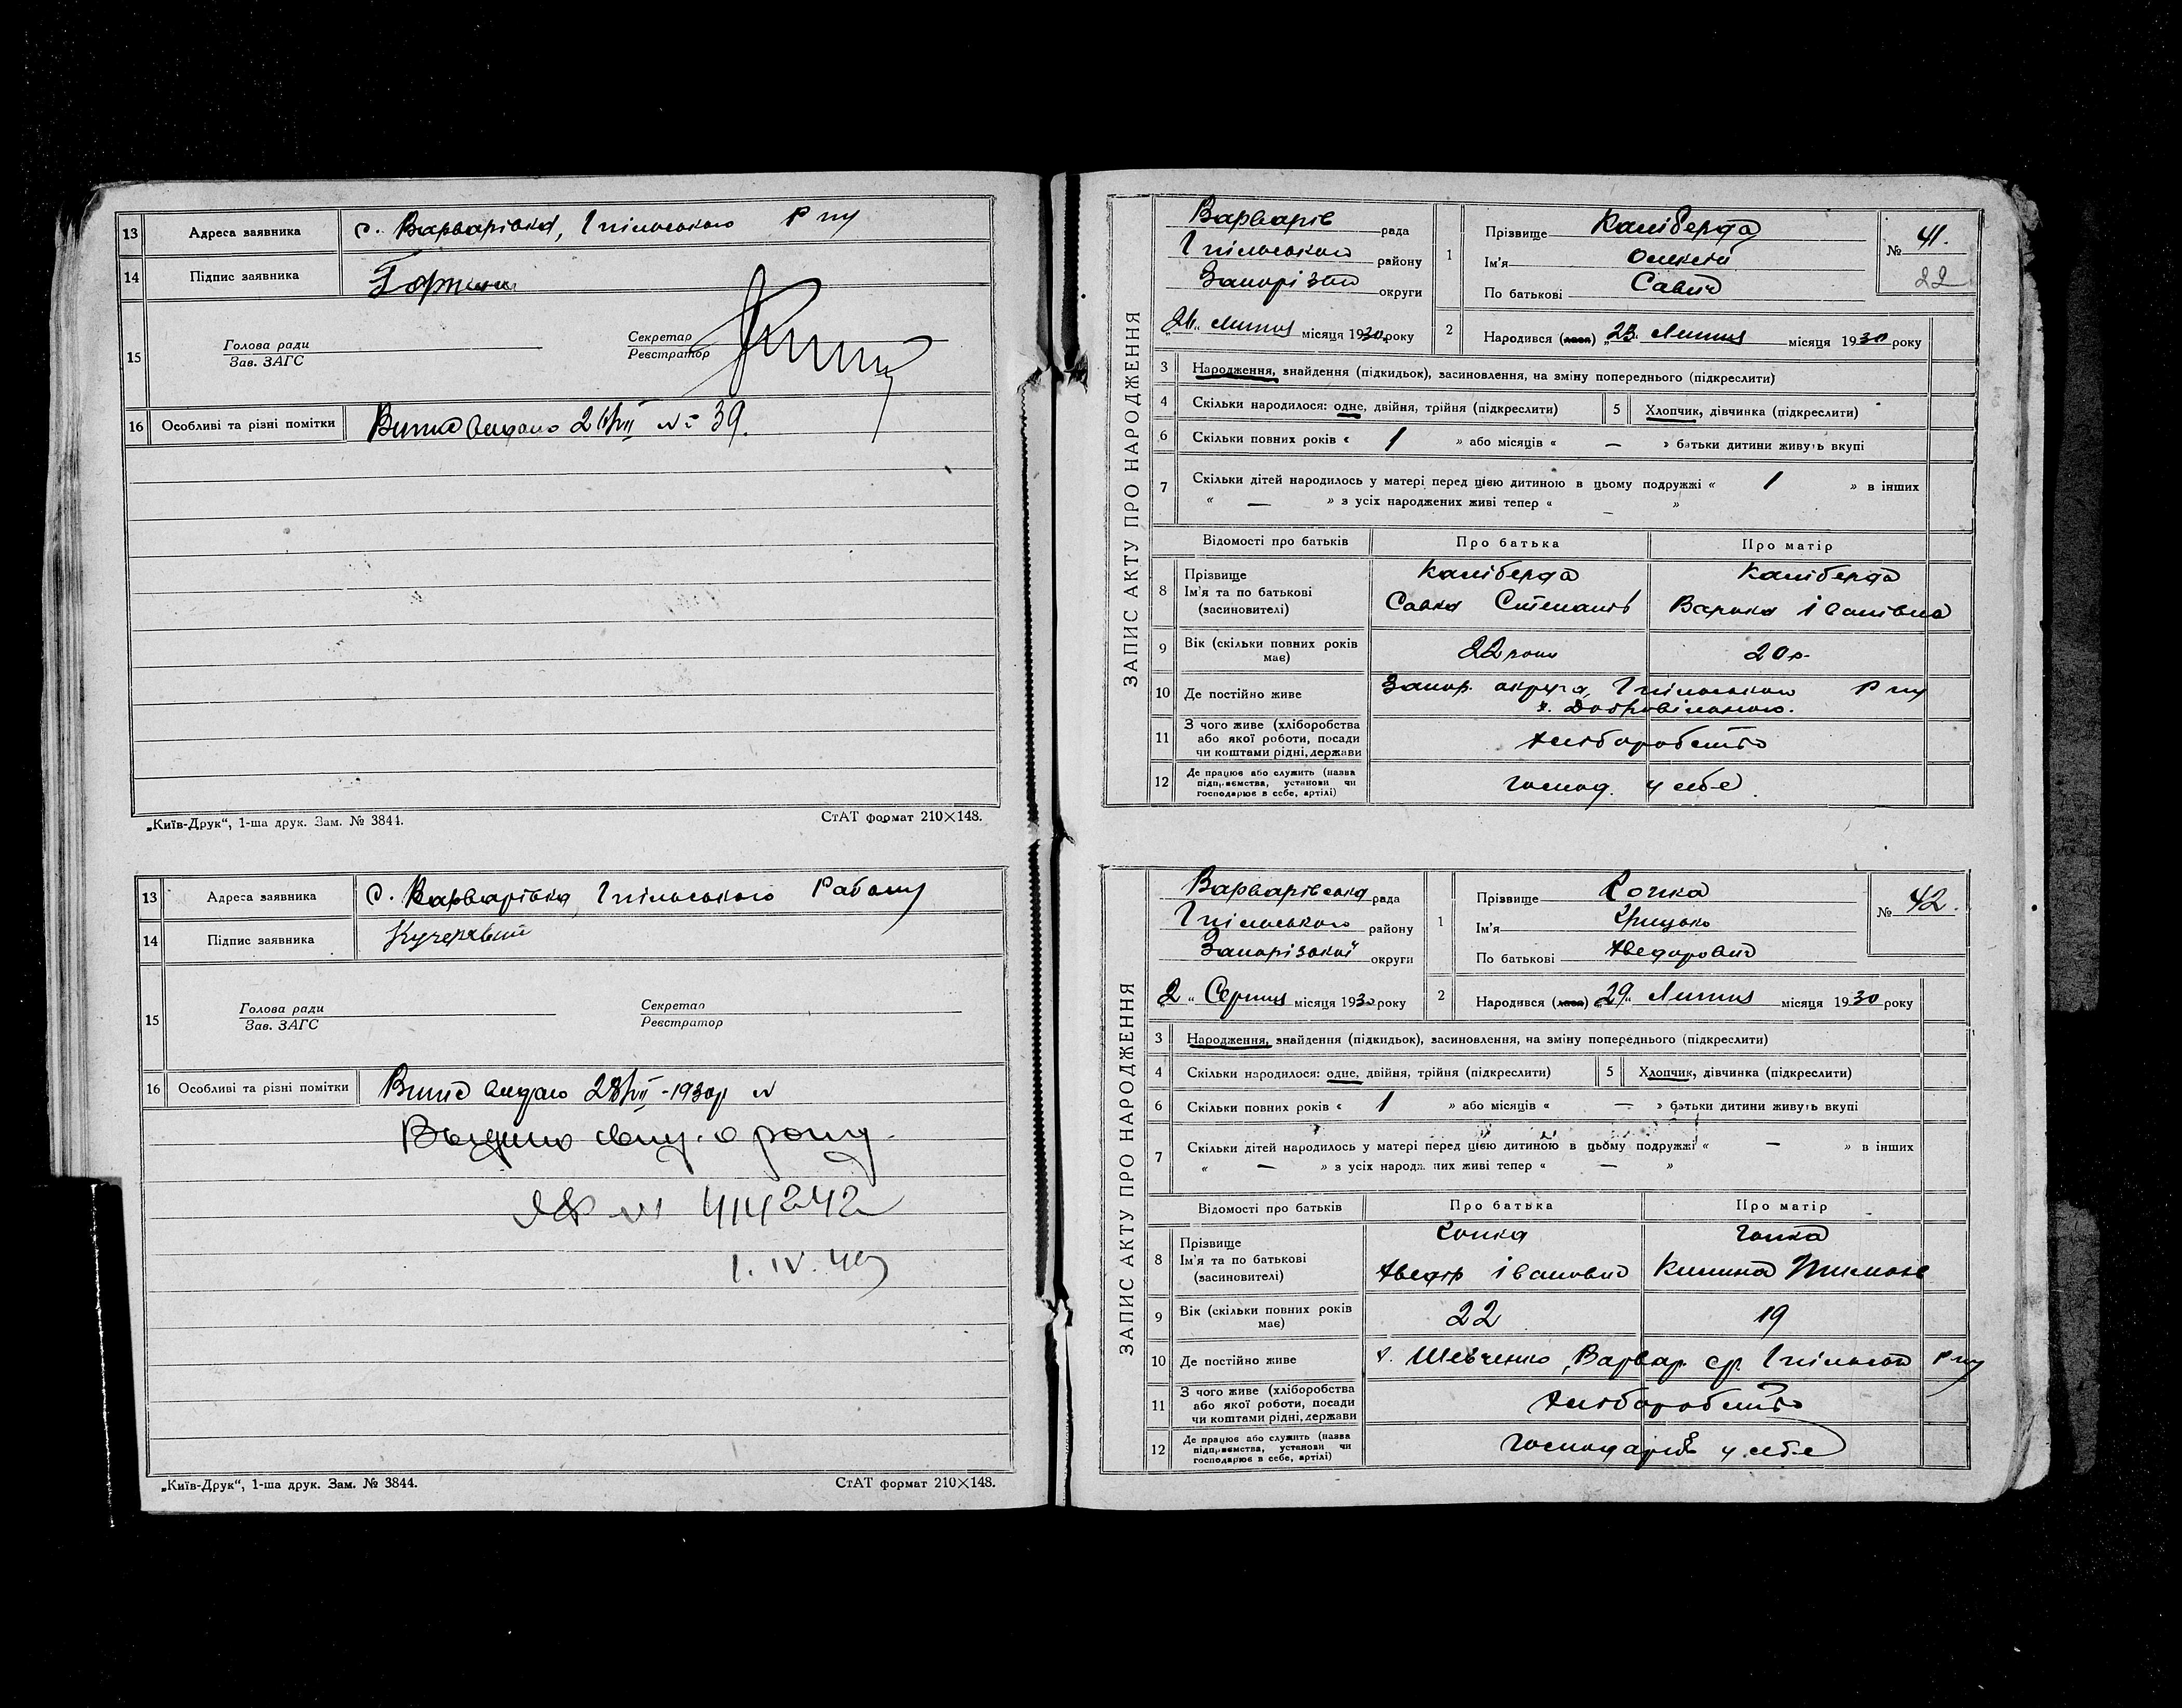 13 Адреса заявника с. Варварівка, Гпільського р-ну
14 Підпис заявника
15 Голова ради
Зав. ЗАГС
Секретар
Реєстратор
16 Особливі та різні помітки Видано № 39.
„Київ-Друк“, 1-ша друк. Зам. № 3844.
СтАТ формат 210×148.
13 Адреса заявника с. Варварівка, Гпільського Району
14 Підпис заявника Кучерявий
15 Голова ради
Зав. ЗАГС
Секретар
Реєстратор
16 Особливі та різні помітки видано 28/VII-1930р №
Выдано свид. о рожд.
№ 414242
1. IV. 49
„Київ-Друк“, 1-ша друк. Зам. № 3844.
СтАТ формат 210×148.
ЗАПИС АКТУ ПРО НАРОДЖЕННЯ
Варварів рада
Гпільського району
Запорізької округи
„26“ Липня місяця 1930 року
1 Прізвище Каніберда
Ім'я Олексій
По батькові Савич
№ 41.
22
2 Народився (лася) „25“ Липня місяця 1930 року
3 Народження, знайдення (підкидьок), засиновлення, на зміну попереднього (підкреслити)
4 Скільки народилося: одне, двійня, трійня (підкреслити) 5 Хлопчик, дівчинка (підкреслити)
6 Скільки повних років « 1 » або місяців « — » батьки дитини живуть вкупі
7 Скільки дітей народилось у матері перед цією дитиною в цьому подружжі « 1 » в інших
« — » з усіх народжених живі тепер « – »
Відомості про батьків Про батька Про матір
8 Прізвище Каніберда Каніберда
Ім'я та по батькові Савка Степанів Варька Іванівна
(засиновителі)
9 Вік (скільки повних років має) 22 роки 20 р.
10 Де постійно живе Запор. округа, Гпільського р-ну
х. Добровільського.
11 З чого живе (хліборобства
або якої роботи, посади
чи коштами рідні, держави Хліборобство
12 Де працює або служить (назва
підприємства, установи чи
господарює в себе, артілі) господ. у себе
ЗАПИС АКТУ ПРО НАРОДЖЕННЯ
Варварівська рада
Гпільського району
Запорізької округи
„2“ Серпня місяця 1930 року
1 Прізвище Гопка
Ім'я Грицько
По батькові Хведорович
№ 42.
2 Народився (лася) „29“ Липня місяця 1930 року
3 Народження, знайдення (підкидьок), засиновлення, на зміну попереднього (підкреслити)
4 Скільки народилося: одне, двійня, трійня (підкреслити) 5 Хлопчик, дівчинка (підкреслити)
6 Скільки повних років « 1 » або місяців « — » батьки дитини живуть вкупі
7 Скільки дітей народилось у матері перед цією дитиною в цьому подружжі « — » в інших
« — » з усіх народжених живі тепер « — »
Відомості про батьків Про батька Про матір
8 Прізвище Гопка Гопка
Ім'я та по батькові Хведір Іванович Килина
(засиновителі)
9 Вік (скільки повних років має) 22 19
10 Де постійно живе х. Шевченко, Варвар. с/р. Гпільськ р-ну
11 З чого живе (хліборобства
або якої роботи, посади
чи коштами рідні, держави Хліборобство
12 Де працює або служить (назва
підприємства, установи чи
господарює в себе, артілі) господарює у себе